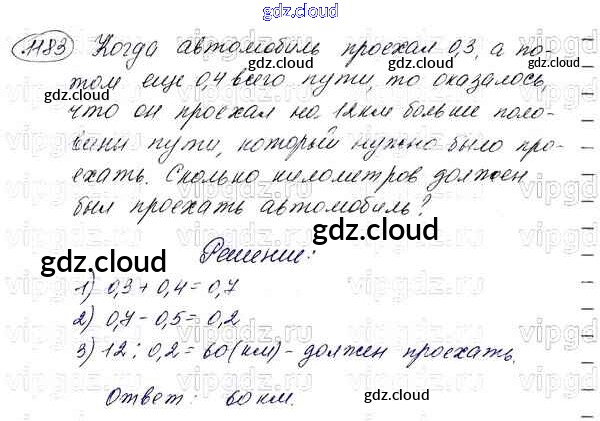 gdz.cloud
1183 Когда автомобиль проехал 0,3, а по-
том еще 0,4 всего пути, то оказалось,
что он проехал на 12 км больше поло-
вины пути, который нужно было про-
ехать. Сколько километров должен
был проехать автомобиль?
Решение:
1) 0,3 + 0,4 = 0,7
2) 0,7 - 0,5 = 0,2
3) 12 : 0,2 = 60 (км) - должен проехать.
Ответ: 60 км.